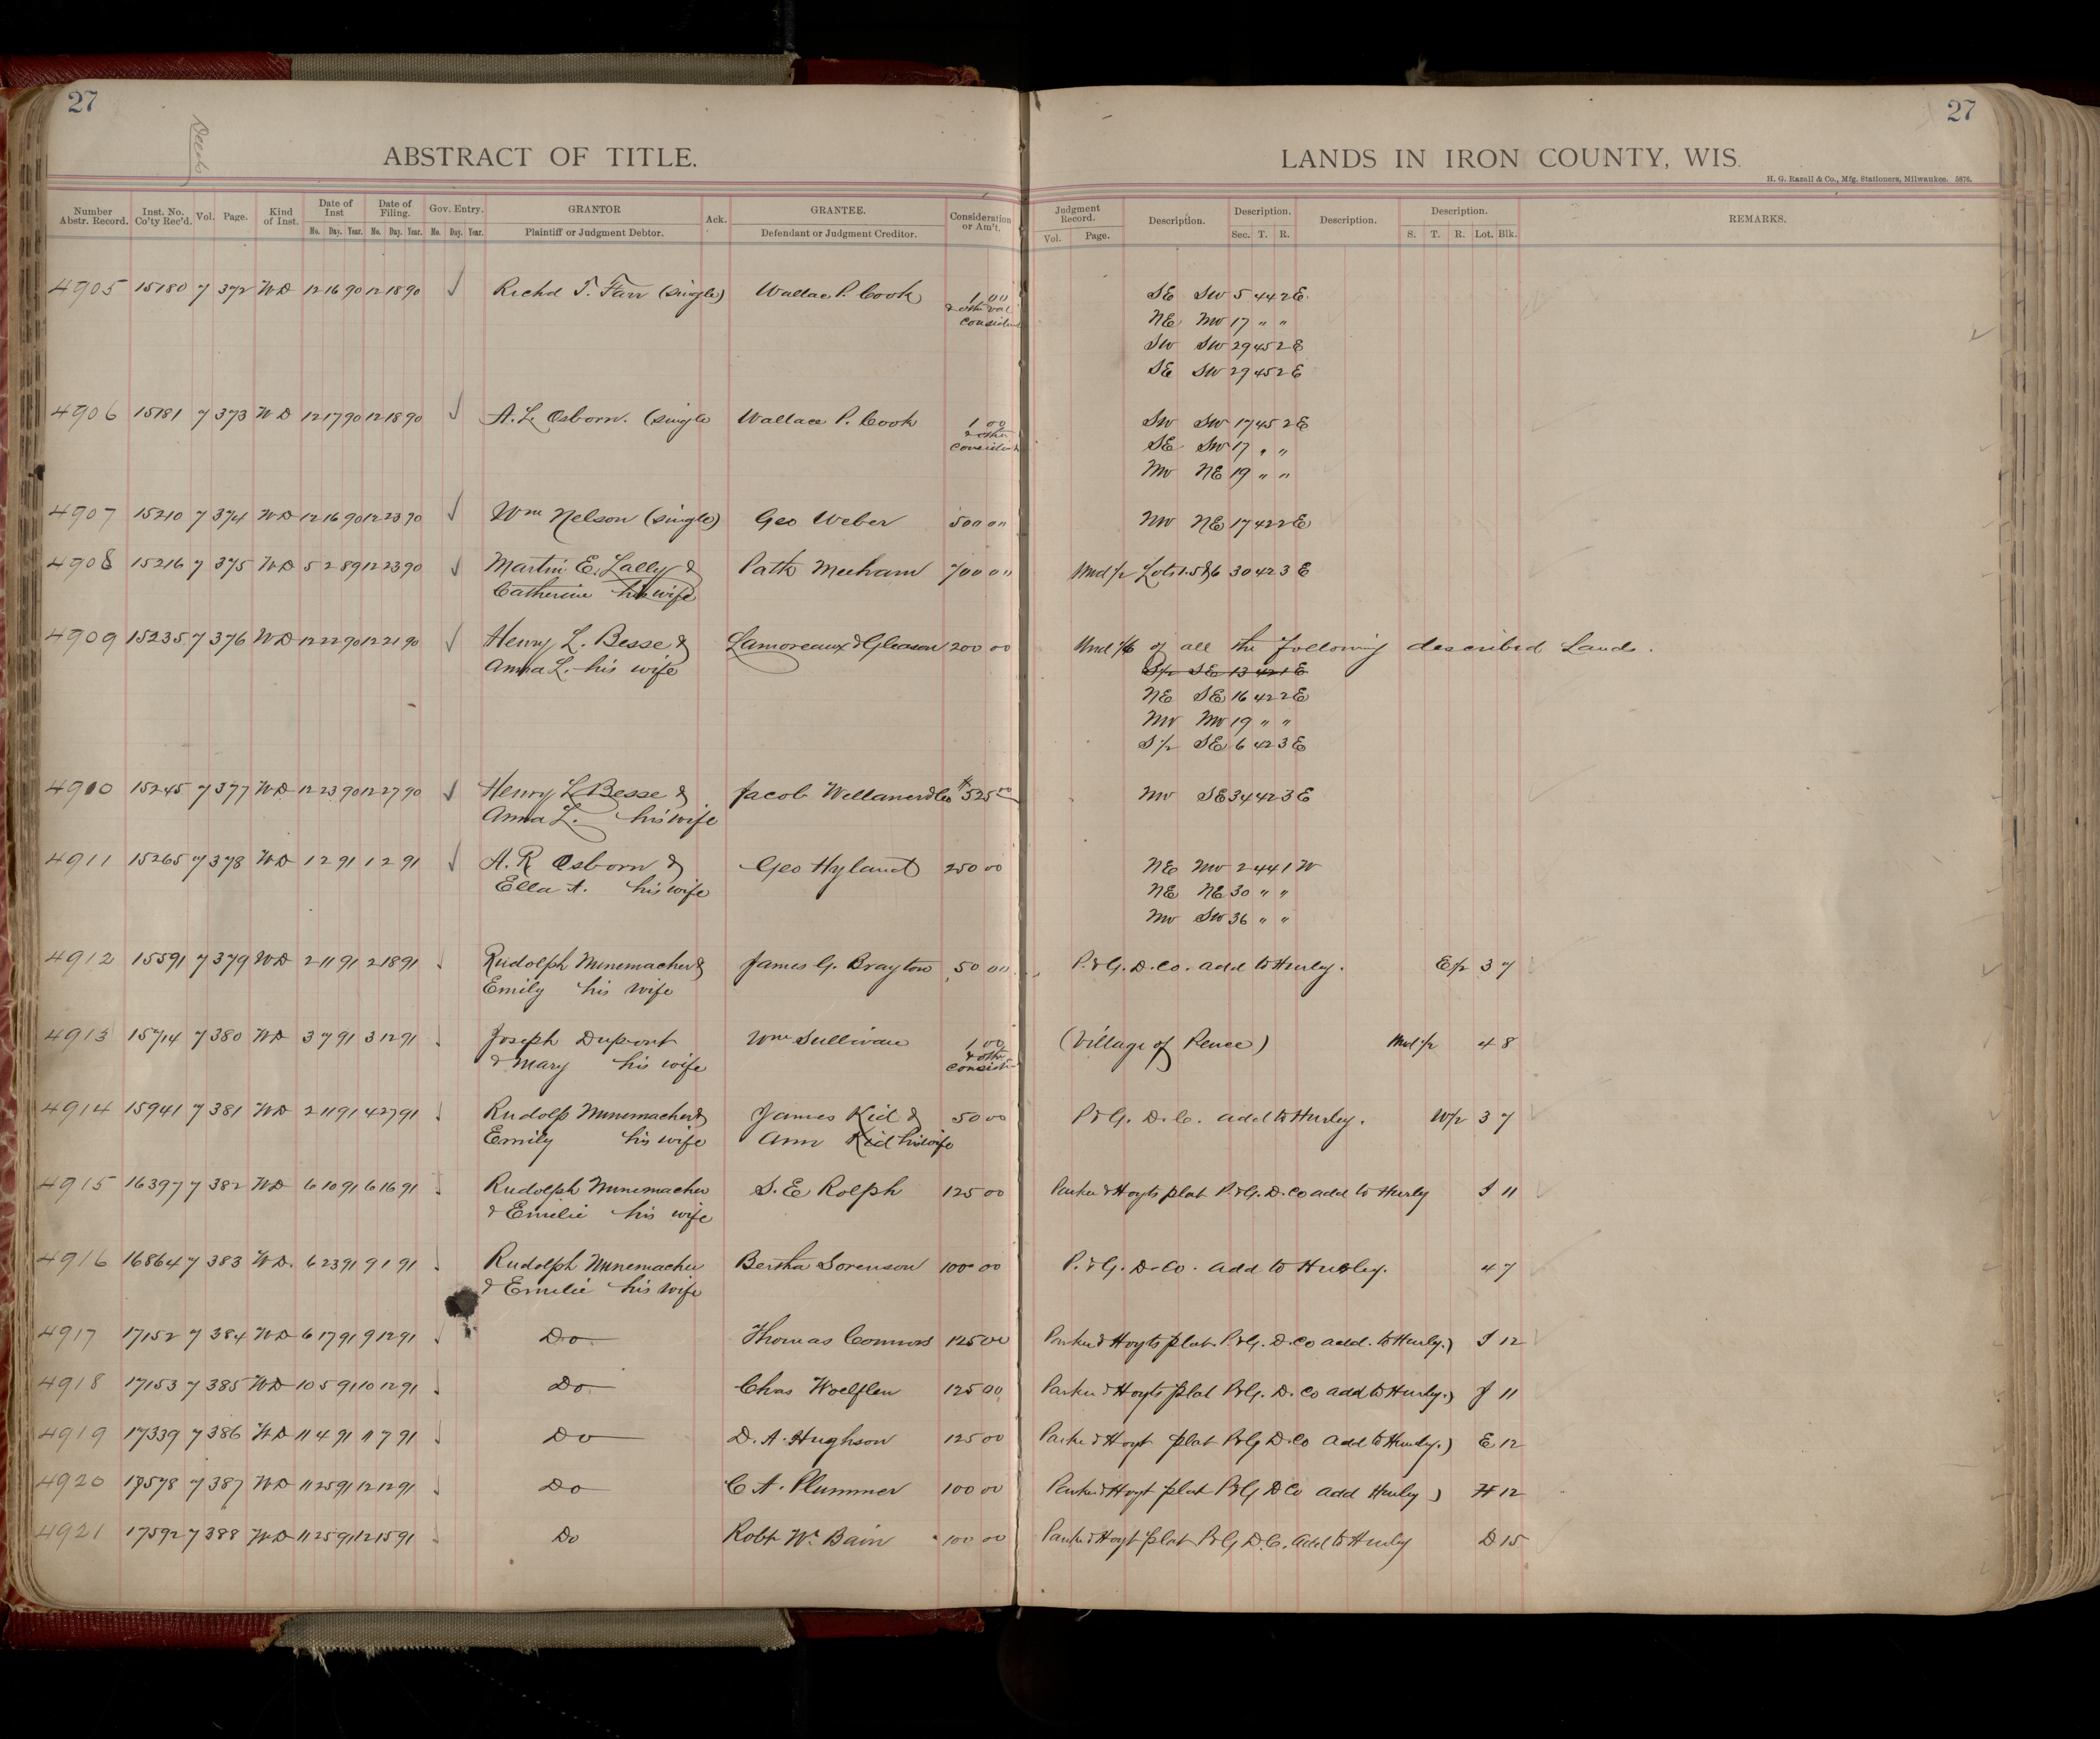 27
27
Deeds
ABSTRACT OF TITLE.
LANDS IN IRON COUNTY, WIS.
H. G. Razall & Co., Mfg. Stationers, Milwaukee. 5876.
Number Abstr. Record. Inst. No. Co'ty Rec'd. Vol. Page. Kind of Inst. Date of Inst Date of Filing. Gov. Entry. GRANTOR Ack. GRANTEE. Consideration or Am't. Judgment Record. Description. Description. Description. Description. REMARKS.
No. Day. Year. No. Day. Year. No. Day. Year. Plaintiff or Judgment Debtor. Defendant or Judgment Creditor. Vol. Page. Sec. T. R. S. T. R. Lot. Blk.
4905 15180 7 372 WD 12 16 90 12 18 90 ✓ Richd T. Farr (single) Wallace P. Cook 1 00 SE SW 5 44 2E
& other val NE NW 17 " "
consider SW SW 29 45 2E
SE SW 29 45 2E
4906 15181 7 373 WD 12 17 90 12 18 90 ✓ A. L. Osborn. (single Wallace P. Cook 1 00 SW SW 17 45 2E
& other SE SW 17 " "
consider NW NE 19 " "
4907 15210 7 374 WD 12 16 90 12 23 90 ✓ Wm Nelson (single) Geo Weber 500 00 NW NE 17 42 2E
4908 15216 7 375 WD 5 2 89 12 23 90 ✓ Martin E. Lally & Patk Meehan 700 00 Und 1/2 Lots 1.5&6 30 42 3 E
Catherine his wife
4909 15235 7 376 WD 12 22 90 12 21 90 ✓ Henry L. Besse & Lamoreaux & Gleason 200 00 Und 1/6 of all the following described Lands.
Anna L. his wife S1/2 SE 13 42 1 E
NE SE 16 42 2E
NW NW 19 " "
S1/2 SE 6 42 3E
4910 15245 7 377 WD 12 23 90 12 27 90 ✓ Henry L Besse & Jacob Wellauer & Co $525 00 NW SE 34 42 3E
Anna L. his wife
4911 15265 7 378 WD 1 2 91 1 2 91 ✓ A. R Osborn & Geo Hyland 250 00 NE NW 2 44 1 W
Ella A. his wife NE NE 30 " "
NW SW 36 " "
4912 15591 7 379 WD 2 11 91 2 18 91 Rudolph Nunemacher & James G. Brayton 50 00 P. & G. D. Co. add to Hurley. E1/2 3 7
Emily his wife
4913 15714 7 380 WD 3 7 91 3 12 91 Joseph Dupont Wm Sullivan 1 00 (Village of Pence) Und 1/2 4 8
& Mary his wife & other consid
4914 15941 7 381 WD 2 11 91 4 27 91 Rudolp Nunemacher & James Kid & 50 00 P & G. D. Co. add to Hurley. W1/2 3 7
Emily his wife Ann Kid his wife
4915 16397 7 382 WD 6 10 91 6 16 91 Rudolph Nunemacher S. E Rolph 125 00 Parker & Hoyts plat P. & G. D. Co add to Hurley I 11
& Emelie his wife
4916 16864 7 383 WD. 6 23 91 9 1 91 Rudolph Nunemacher Bertha Sorenson 100 00 P. & G. D. Co. add to Hurley. 4 7
& Emelie his wife
4917 17152 7 384 WD 6 17 91 9 12 91 Do Thomas Connors 125 00 Parker & Hoyts plat P. & G. D. Co add. to Hurley.) I 12
4918 17153 7 385 WD 10 5 91 10 12 91 Do Chas Woelflen 125 00 Parker & Hoyts plat P & G. D. Co add to Hurley.) J 11
4919 17339 7 386 WD 11 4 91 11 7 91 Do D. A. Hughson 125 00 Parker & Hoyt plat P & G D. Co add to Hurley.) E 12
4920 17578 7 387 WD 11 25 91 12 12 91 Do C A. Plummer 100 00 Parker & Hoyt plat P & G D Co add Hurley ) H 12
4921 17592 7 388 WD 11 25 91 12 15 91 Do Robt W. Bain 100 00 Parker & Hoyt plat P & G D. C. add to Hurley D 15